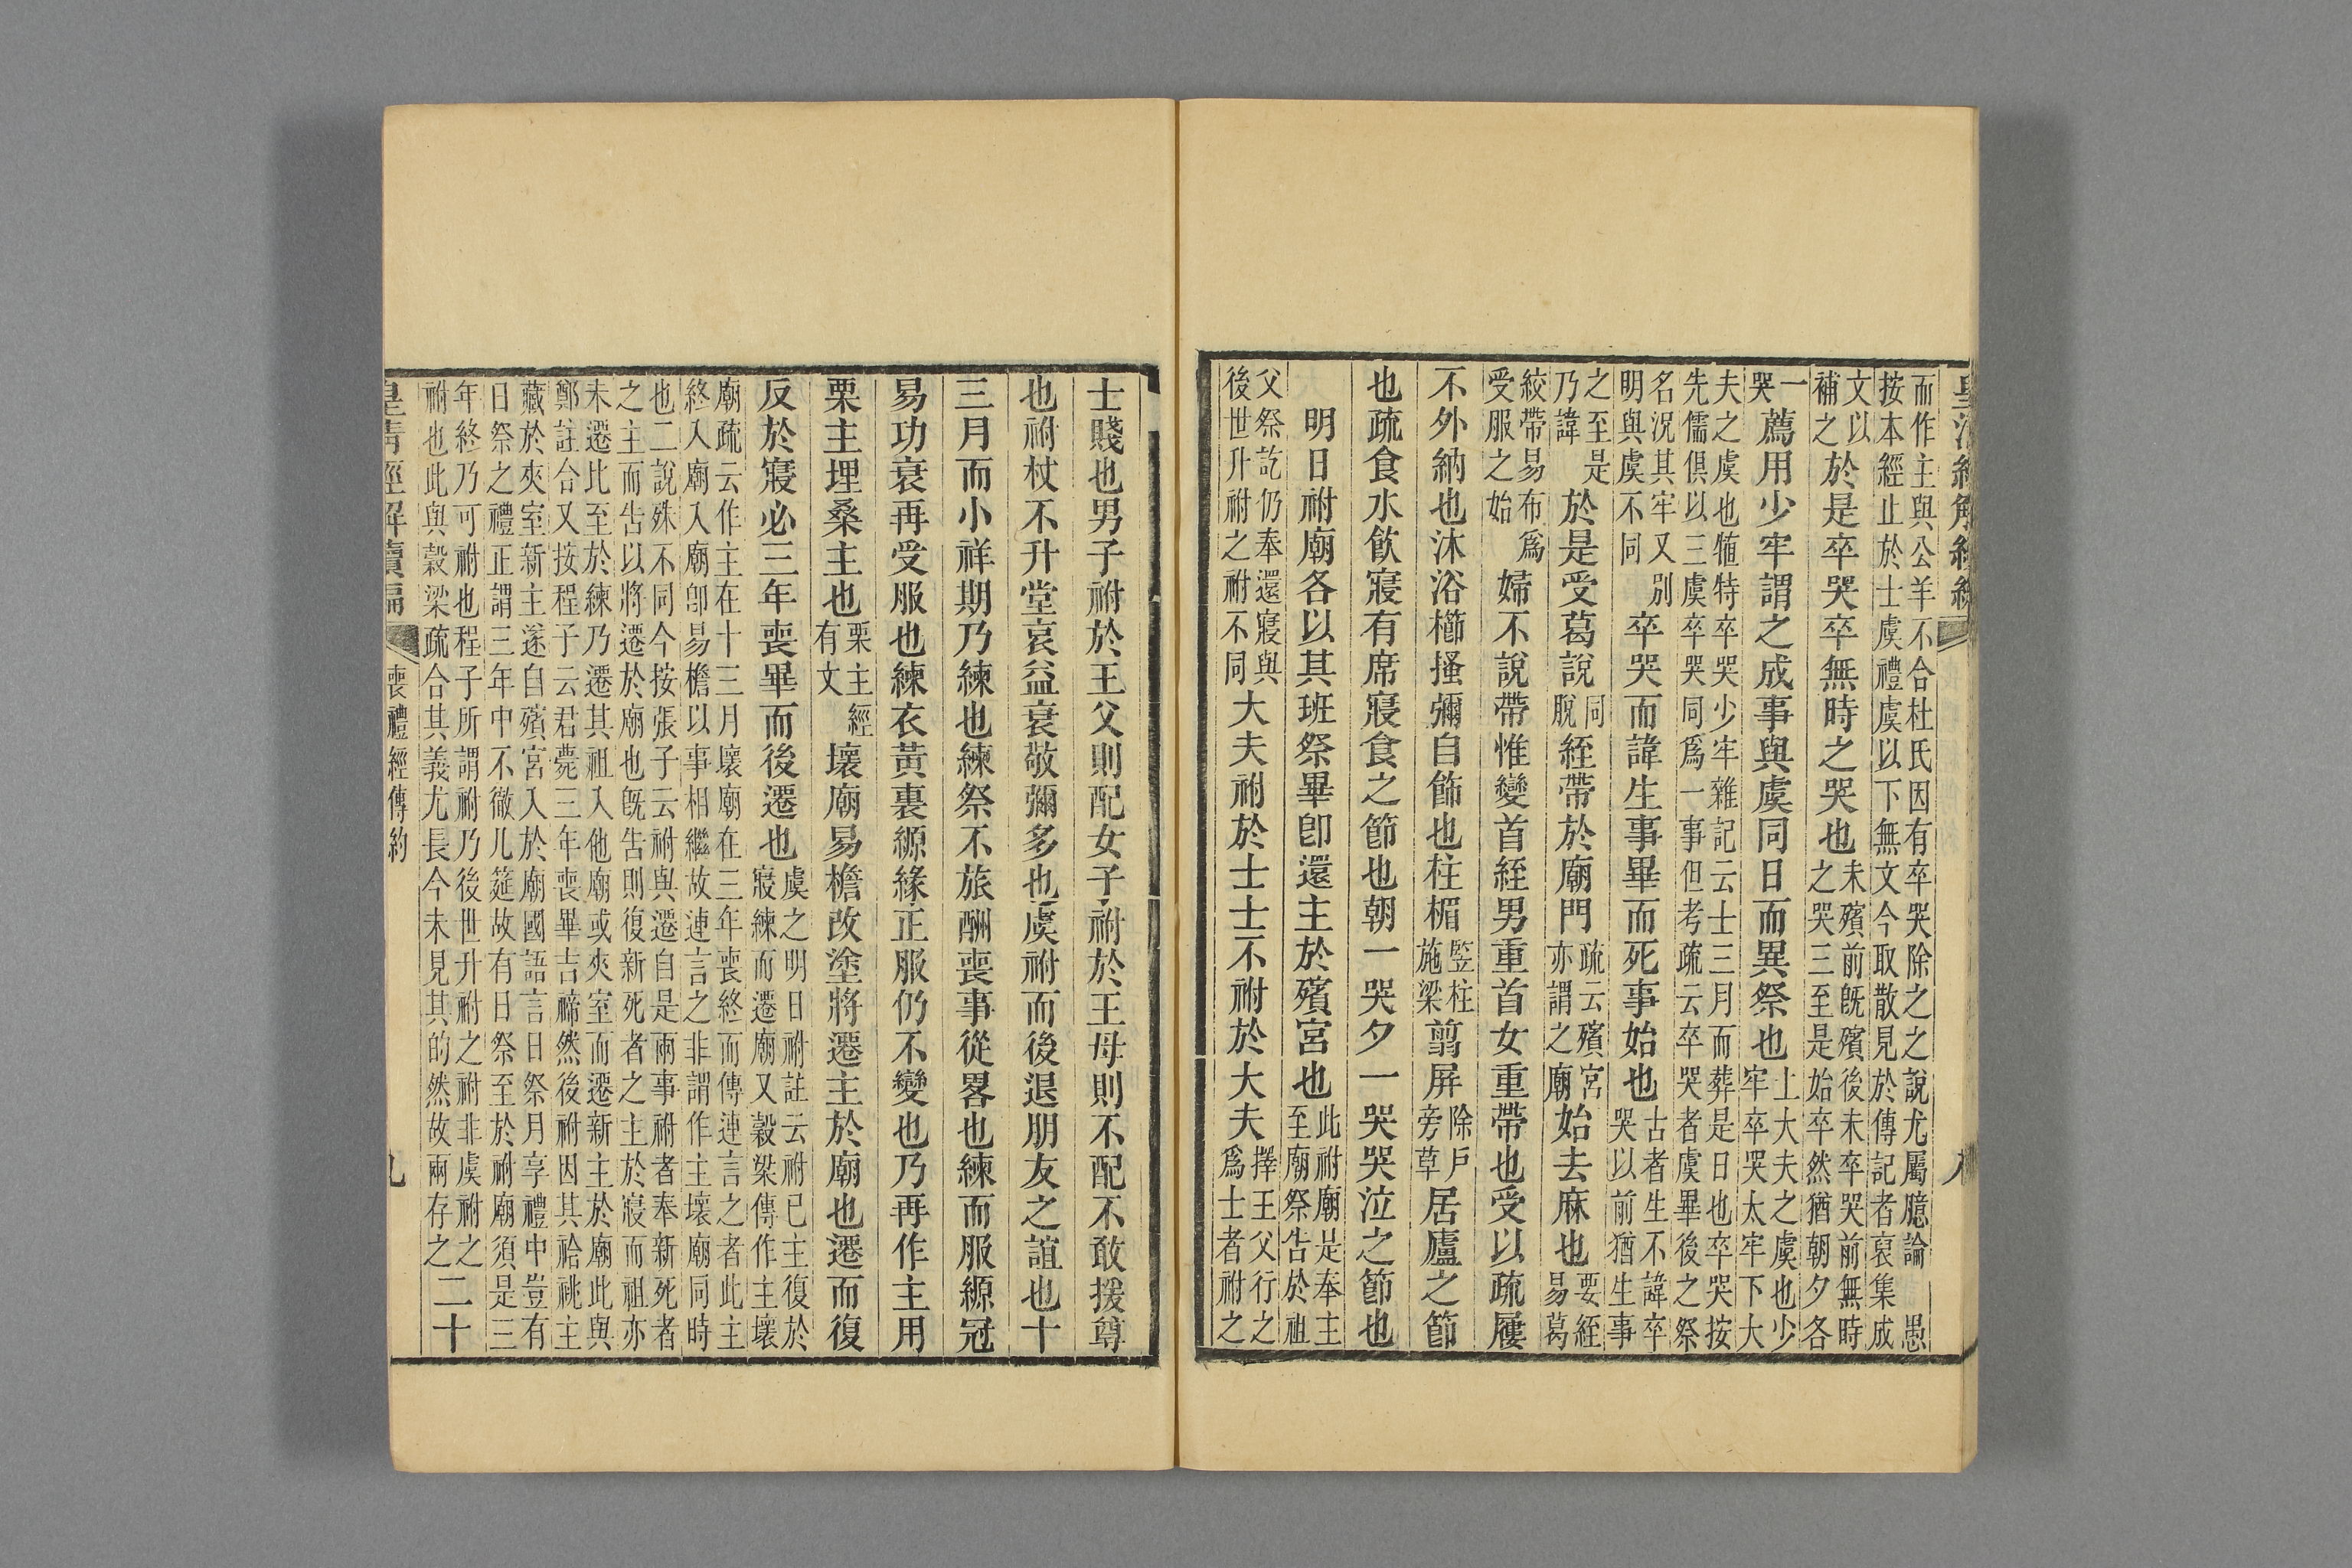 而作主與公羊不合杜氏因有卒哭除之之說尤屬臆論　愚
按本經止於士虞禮虞以下無文今取散見於傳記者裒集成
文以
補之
於是卒哭卒無時之哭也
未殯前旣殯後未卒哭前無時
之哭三至是始卒然猶朝夕各
一
哭
薦用少牢謂之成事與虞同日而異祭也
上大夫之虞也少
牢卒哭太牢下大
夫之虞也犆特卒哭少牢雜記云士三月而葬是日也卒哭按
先儒俱以三虞卒哭同爲一事但考疏云卒哭者虞畢後之祭
名況其牢又別
明與虞不同
卒哭而諱生事畢而死事始也
古者生不諱卒
哭以前猶生事
之至是
乃諱
於是受葛說
同
脫
絰帶於廟門
疏云殯宮
亦謂之廟
始去麻也
要絰
易葛
絞帶易布爲
受服之始
婦不說帶惟變首絰男重首女重帶也受以疏屨
不外納也沐浴櫛搔彌自飾也柱楣
竪柱
施梁
翦屏
除戶
旁草
居廬之節
也疏食水飮寢有席寢食之節也朝一哭夕一哭哭泣之節也
明日祔廟各以其班祭畢卽還主於殯宮也
此祔廟是奉主
至廟祭告於祖
父祭訖仍奉還寢與
後世升祔之祔不同
大夫祔於士士不祔於大夫
擇王父行之
爲士者祔之
士賤也男子祔於王父則配女子祔於王母則不配不敢援尊
也祔杖不升堂哀益衰敬彌多也虞祔而後退朋友之誼也十
三月而小祥期乃練也練祭不旅酬喪事從畧也練而服縓冠
易功衰再受服也練衣黃裏縓緣正服仍不變也乃再作主用
栗主埋桑主也
栗主經
有文
壞廟易檐改塗將遷主於廟也遷而復
反於寢必三年喪畢而後遷也
虞之明日祔註云祔已主復於
寢練而遷廟又穀梁傳作主壞
廟疏云作主在十三月壞廟在三年喪終而傳連言之者此主
終入廟入廟卽易檐以事相繼故連言之非謂作主壞廟同時
也二說殊不同今按張子云祔與遷自是兩事祔者奉新死者
之主而告以將遷於廟也旣告則復新死者之主於寢而祖亦
未遷比至於練乃遷其祖入他廟或夾室而遷新主於廟此與
鄭註合又按程子云君薨三年喪畢吉禘然後祔因其祫祧主
藏於夾室新主遂自殯宮入於廟國語言日祭月享禮中豈有
日祭之禮正謂三年中不徹几筵故有日祭至於祔廟須是三
年終乃可祔也程子所謂祔乃後世升祔之祔非虞祔之
祔也此與穀梁疏合其義尤長今未見其的然故兩存之
二十
皇淸經解續編
喪禮經傳約
九